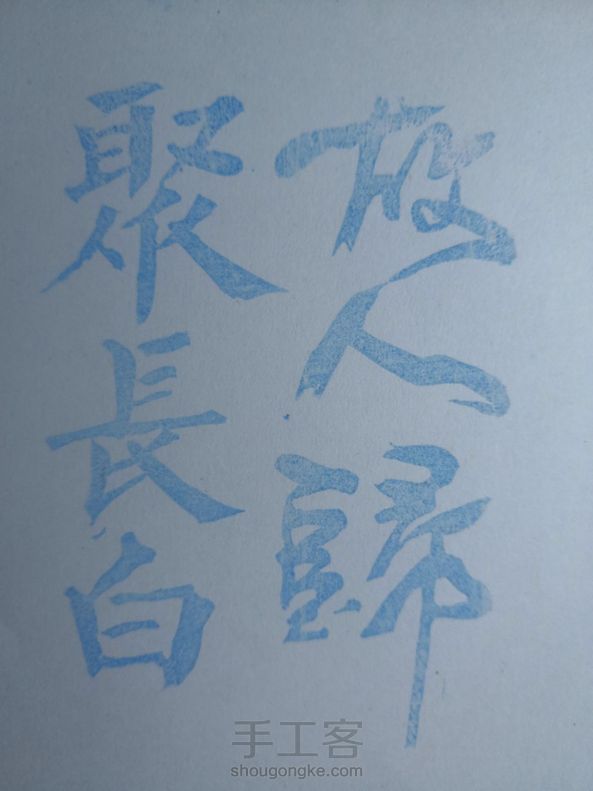 故人歸
聚長白
手工客
shougongke.com